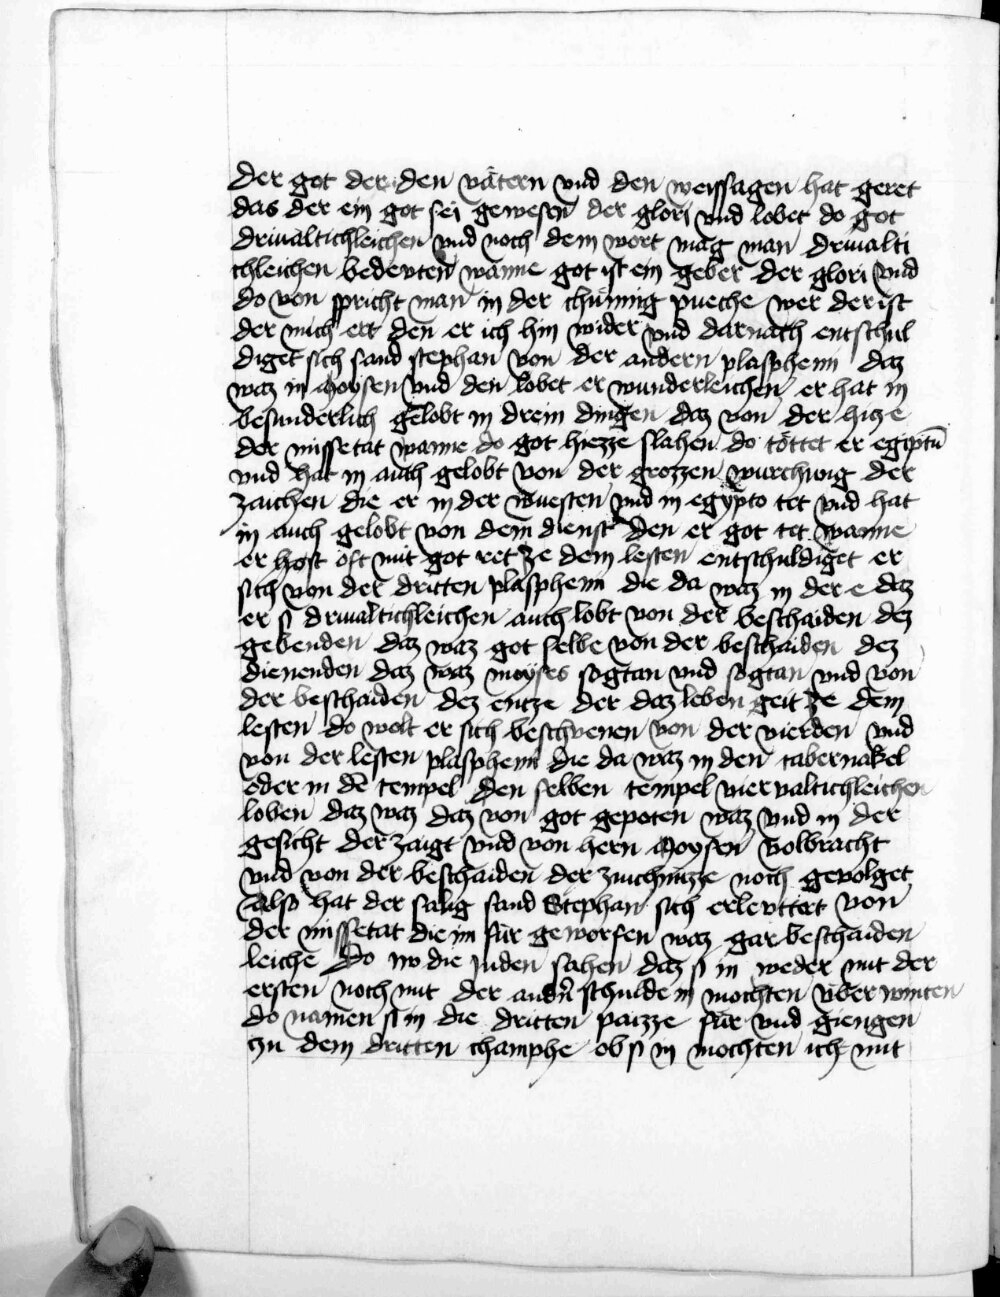 der got der den vätern vnd den weissagen hat geret
das der ein got sei gewesen der glori vnd lobet do got
driualtichleichen vnd noch dem wort mag man driualti
chleichen bedewten wanne got ist ein geber der glori vnd
do von spricht man in der chünnig pueche wer der ist
der mich ert den er ich hin wider vnd darnach entschul
diget sich sand stephan von der andern plasphemi daz
waz in moysen vnd den lobet er wunderleichen er hat in
besunderlich gelobt in drein dingen daz von der hicze
der missetat wanne do got hiezze slahen do töttet er egiptū
vnd hat in auch gelobt von der grozzen wurchung der
zaichen die er in der wuesten vnd in egypto tet vnd hat
in auch gelobt von dem dienst den er got tet wanne
er host oft mit got ret ze dem lesten entschuldiget er
sich von der dritten plasphemi die da waz in der e daz
er si driualtichleichen auch lobt von der beschaiden dez
gebenden daz waz got selbe von der beschaiden dez
dienenden daz waz moyses sogtan vnd sogtan vnd von
der beschaiden dez entze der daz leben geit ze dem
lesten do wolt er sich beschönen von der vierden vnd
von der lesten plasphemi die da waz in den tabernakel
oder in dē tempel den selben tempel viervaltichleichen
loben daz waz daz von got gepoten waz vnd in der
gesicht derzaigt vnd von hern moysen volbracht
vnd von der beschaiden der noch gevolget
Also hat der salig sand Stephan sich erlewttert von
der missetat die im für geworfen waz gar beschaiden
leiche Do nv die Juden sahen daz si in weder mit der
ersten noch mit der andn̄ schulde in mochten überwinten
do namen si in die dritten paizze für vnd giengen
zu dem dritten champhe ob si in mochten icht mit